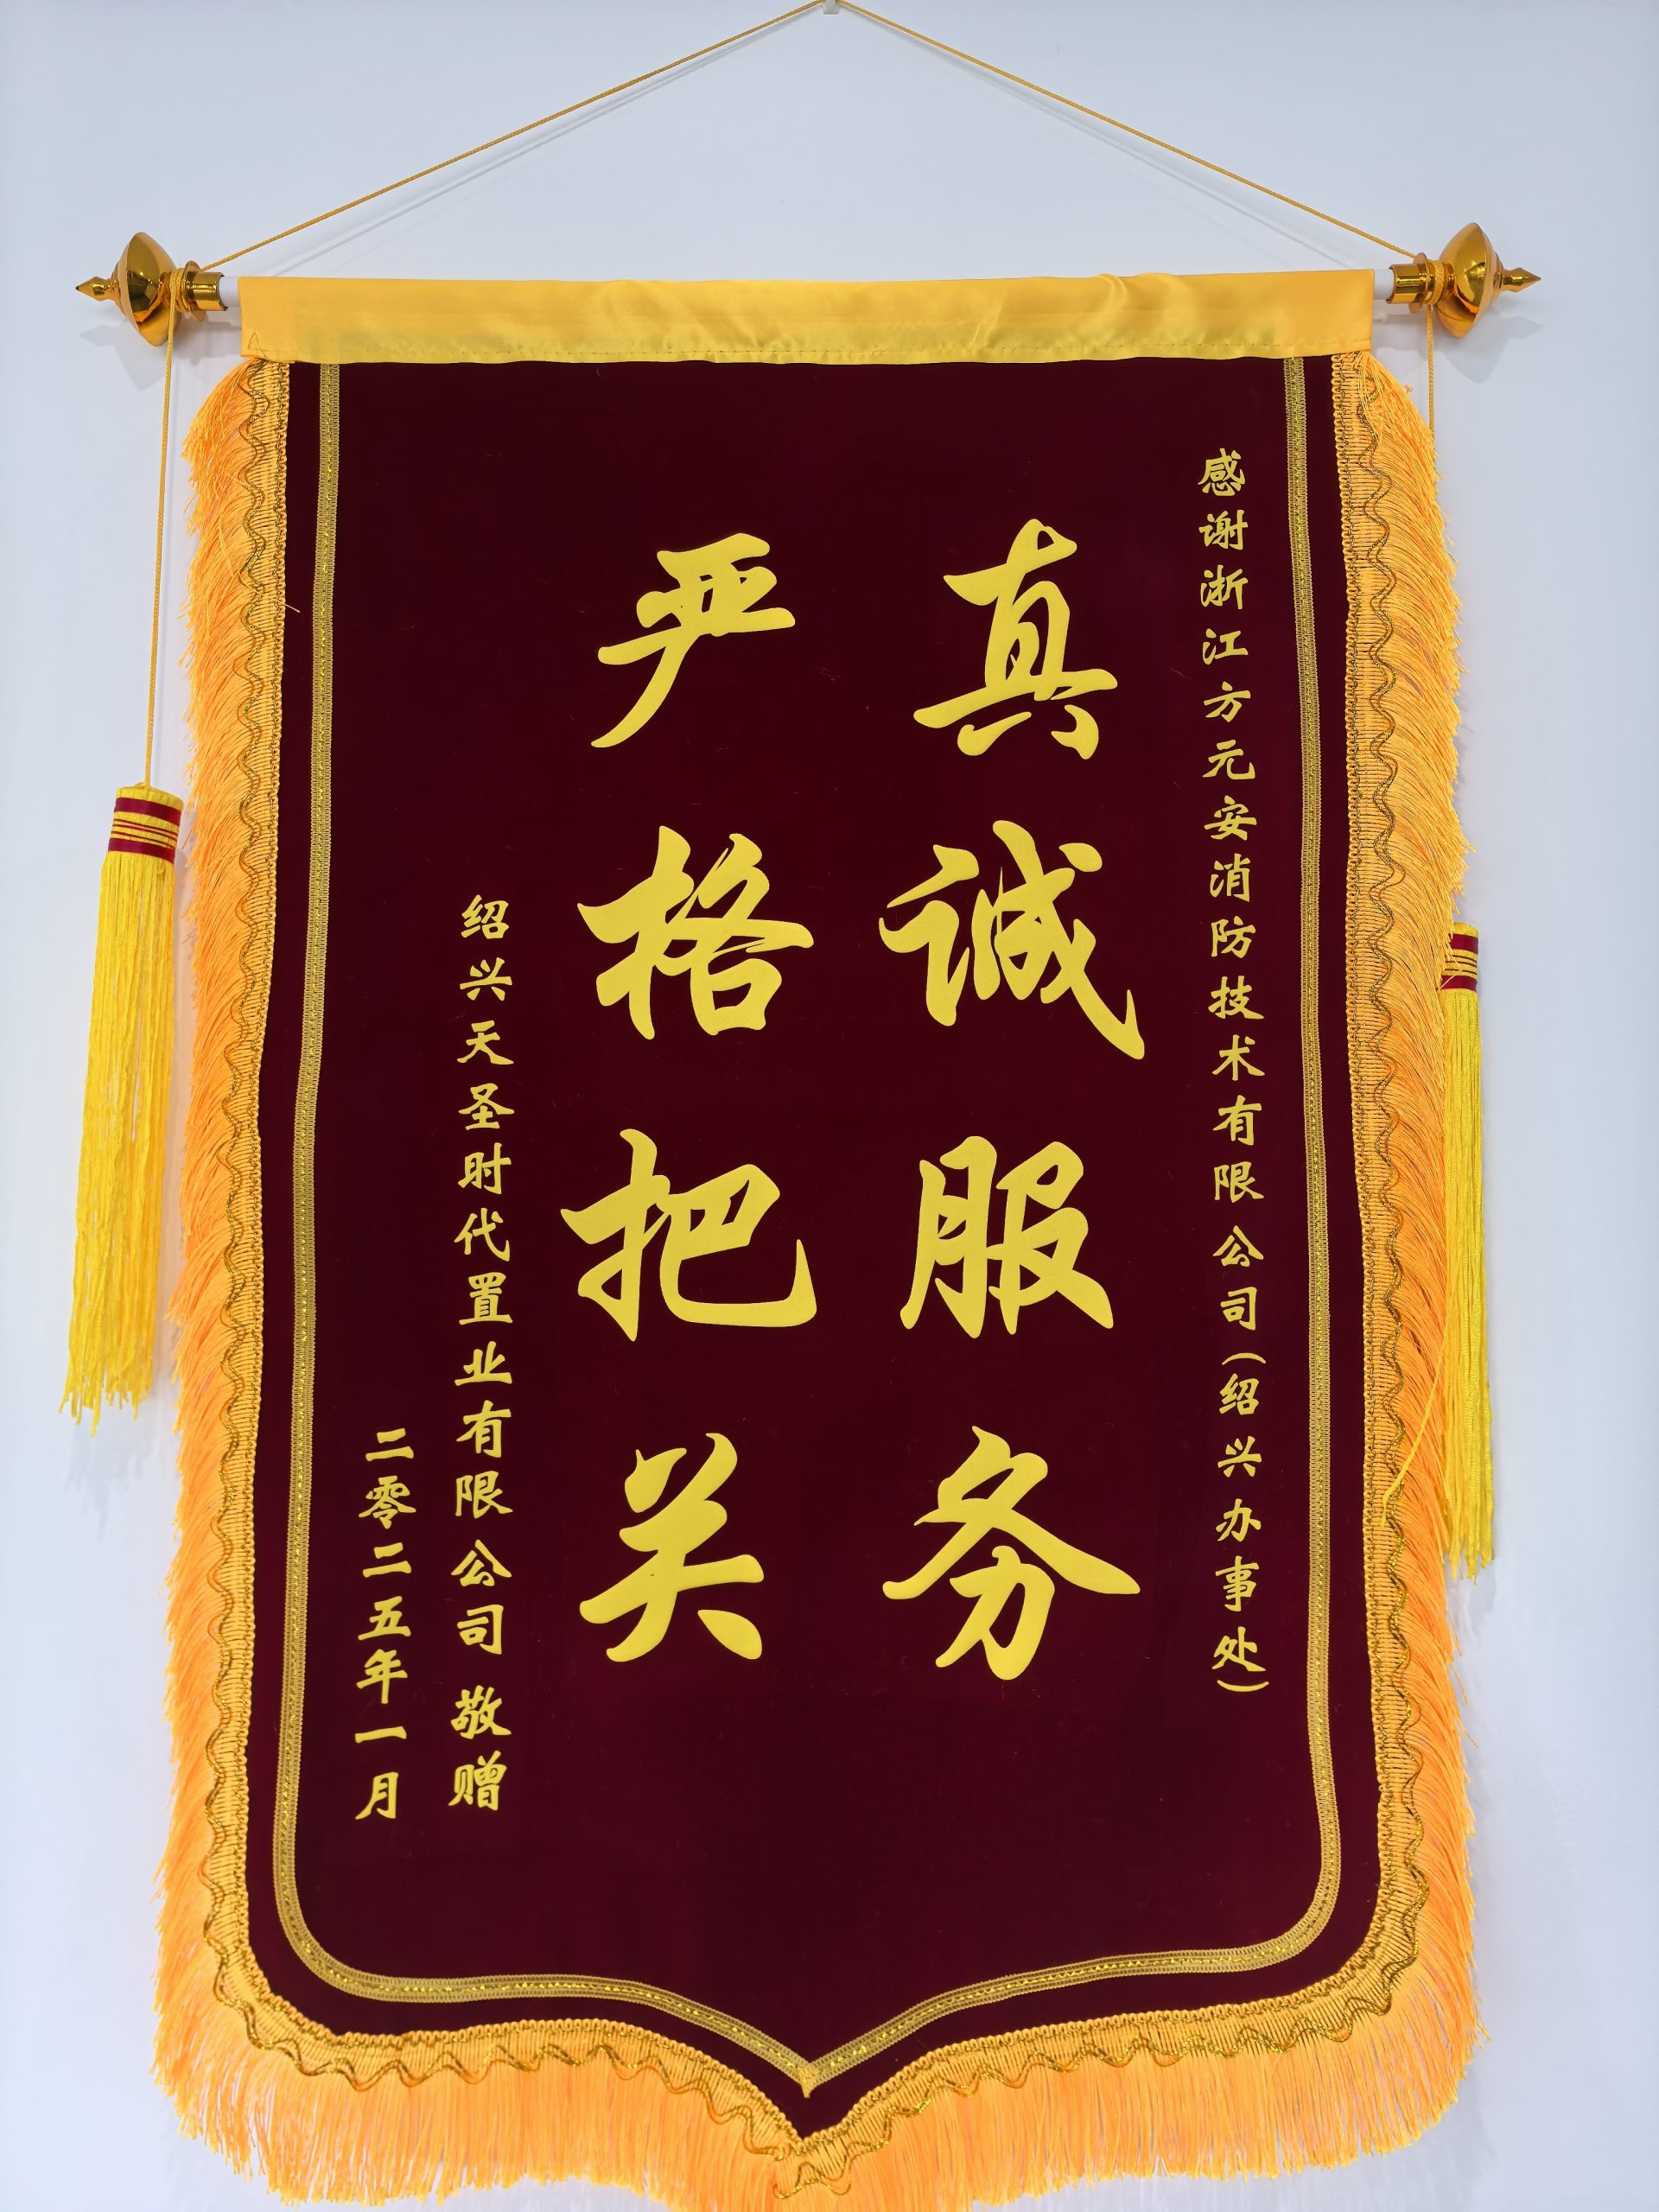 感谢浙江方元安消防技术有限公司(绍兴办事处)
真诚服务
严格把关
绍兴天圣时代置业有限公司 敬赠
二零二五年一月